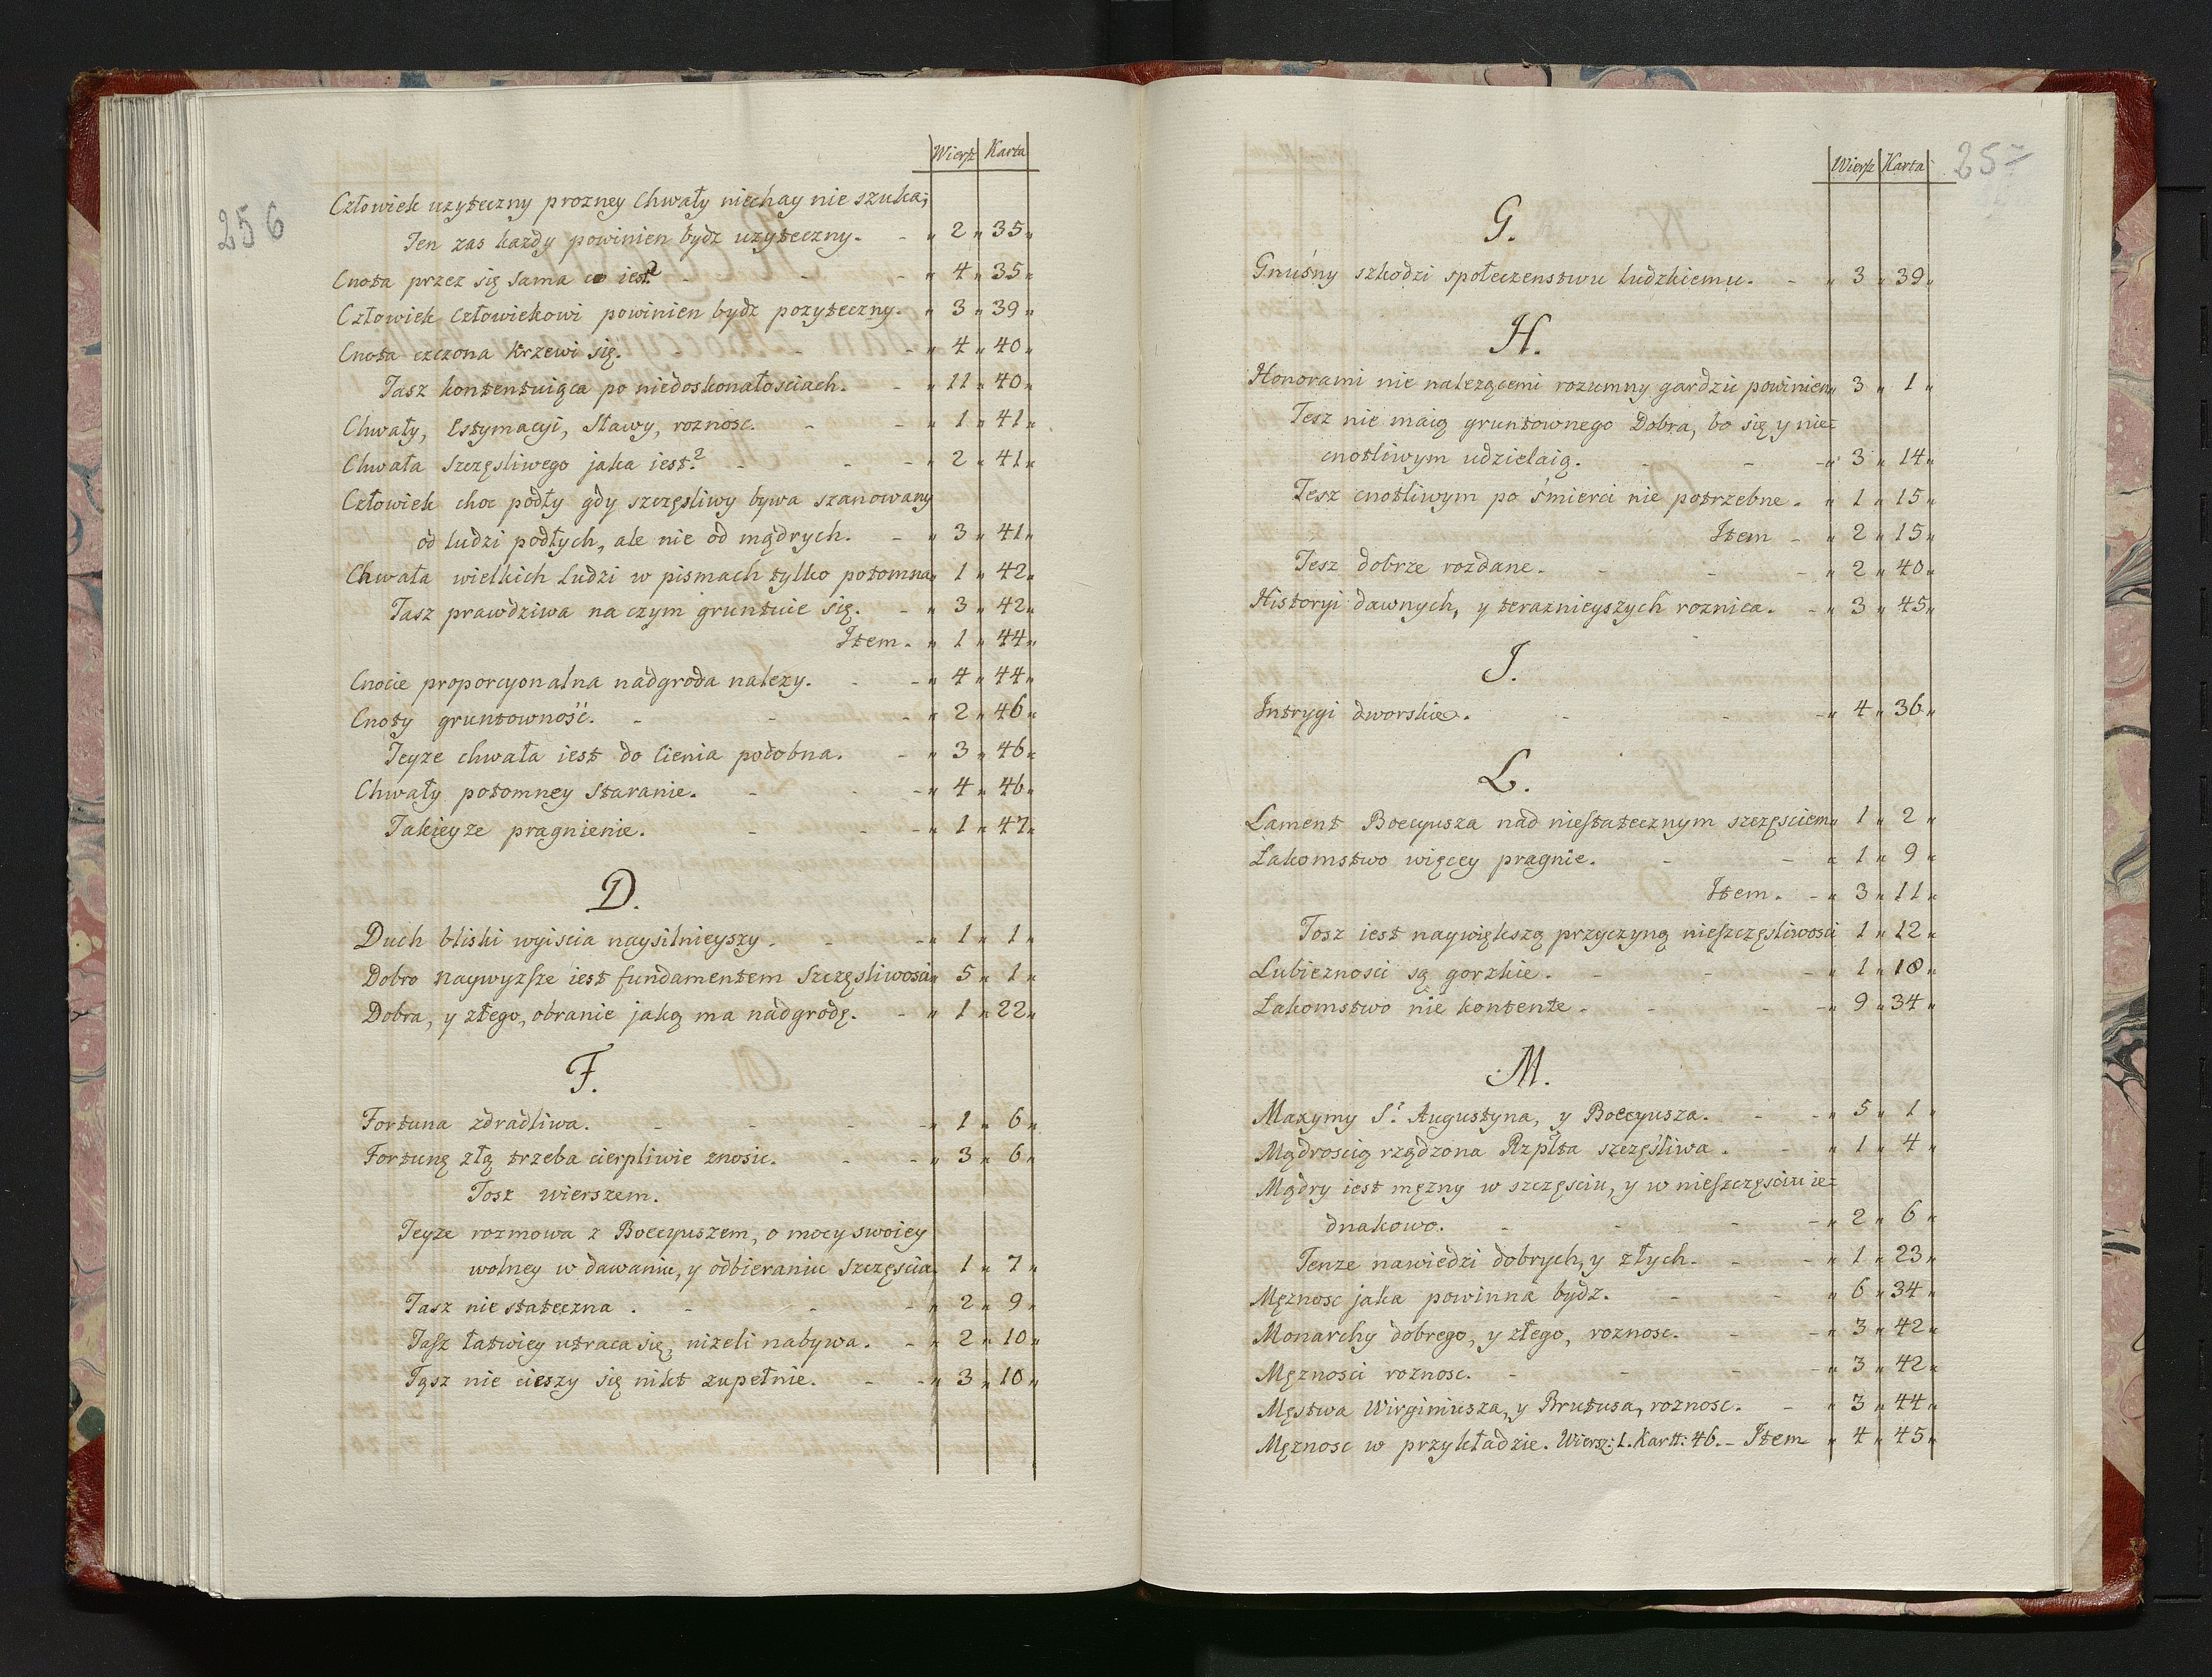 Wiersz Karta
256
Człowiek uzyteczny prozney Chwały niechay nie szuka;
Ten zas kazdy powinien bydz uzyteczny. - „ 2 „ 35 „
Cnota przez się sama co iest? - - - „ 4 „ 35 „
Człowiek człowiekowi powinien bydz pozyteczny. „ 3 „ 39 „
Cnota czczona krzewi się. - - - „ 4 „ 40 „
Tasz kontentuiąca po niedoskonałosciach. - „ 11 „ 40 „
Chwały, Estymacyi, Sławy, roznosc. - - „ 1 „ 41 „
Chwała Szczęsliwego jaka iest? - - - „ 2 „ 41 „
Człowiek choc podły gdy szczęsliwy bywa szanowany
od ludzi podłych, ale nie od mądrych. - „ 3 „ 41 „
Chwała wielkich Ludzi w pismach tylko potomna „ 1 „ 42 „
Tasz prawdziwa na czym gruntuie się. - „ 3 „ 42 „
Item. „ 1 „ 44 „
Cnocie proporcyonalna nadgroda nalezy. - - „ 4 „ 44 „
Cnoty gruntowność. - - - „ 2 „ 46 „
Teyze chwała iest do Cienia podobna. - „ 3 „ 46 „
Chwały potomney staranie. - - - „ 4 „ 46 „
Takieyze pragnienie. - - - „ 1 „ 47 „
D.
Duch bliski wyiscia naysilnieyszy. - - „ 1 „ 1 „
Dobro naywyzsze iest fundamentem Szczęsliwosci „ 5 „ 1 „
Dobra, y złego, obranie jaką ma nadgrodę. - „ 1 „ 22 „
F.
Fortuna zdradliwa. - - - - „ 1 „ 6 „
Fortunę złą trzeba cierpliwie znosic. - - „ 3 „ 6 „
Tosz wierszem.
Teyze rozmowa z Boecyuszem, o mocy swoiey
wolney w dawaniu, y odbieraniu Szczęscia „ 1 „ 7 „
Tasz niestateczna. - - - „ 2 „ 9 „
Tasz łatwiey utraca się, nizeli nabywa. - „ 2 „ 10 „
Tąsz nie cieszy się nikt zupełnie. - - „ 3 „ 10 „
Wiersz Karta
257
G.
Gnuśny szkodzi społeczenstwu ludzkiemu. - „ 3 „ 39 „
H.
Honorami nie nalezącemi rozumny gardzić powinien „ 3 „ 1 „
Tesz nie maią gruntownego Dobra, bo się y nie=
cnotliwym udzielaią. - - - „ 3 „ 14 „
Tesz cnotliwym po śmierci nie potrzebne. - „ 1 „ 15 „
Item - „ 2 „ 15 „
Tesz dobrze rozdane. - - - „ 2 „ 40 „
Historyi dawnych, y teraznieyszych roznica. - „ 3 „ 45 „
I.
Intrygi dworskie. - - - „ 4 „ 36 „
L.
Lament Boecyusza nad niestatecznym szczęsciem „ 1 „ 2 „
Łakomstwo więcey pragnie. - - „ 1 „ 9 „
Item. - „ 3 „ 11 „
Tosz iest naywiększą przyczyną nieszczęsliwosci 1 „ 12 „
Lubieznosci są gorzkie. - - - „ 1 „ 18 „
Łakomstwo nie kontente. - - - „ 9 „ 34 „
M.
Maxymy S? Augustyna, y Boecyusza. - - „ 5 „ 1 „
Mądroscią rządzona Rzplta szczęśliwa. - „ 1 „ 4 „
Mądry iest męzny w szczęsciu, y w nieszczęsciu ie=
dnakowo. - - - „ 2 „ 6 „
Tenze nawiedzi dobrych, y złych. - - „ 1 „ 23 „
Męznosc jaka powinna bydz. - - „ 6 „ 34 „
Monarchy dobrego, y złego, roznosc. - - „ 3 „ 42 „
Męznosci roznosc. - - - „ 3 „ 42 „
Męstwa Wirginiusza, y Brutusa, roznosc. - „ 3 „ 44 „
Męznosc w przykładzie. Wiersz: 1. Kartt: 46. - Item „ 4 „ 45 „